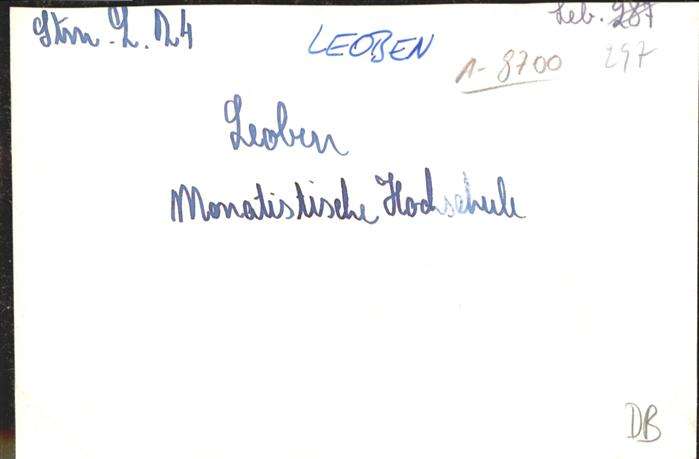 Stm. L. N4
LEOBEN
Leb. 287
A-8700
297
Leoben
Monatistische Hochschule
DB